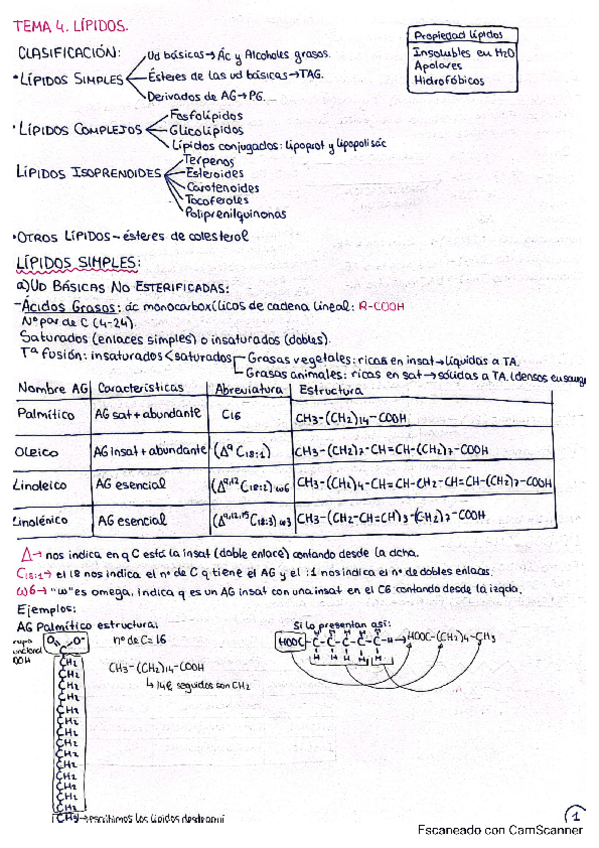 TEMA 4. LÍPIDOS.
Propiedad lípidos
Insolubles en H2O
Apolares
Hidrofóbicos
CLASIFICACIÓN:
•LÍPIDOS SIMPLES
Ud básicas→Ác y Alcoholes grasos.
Ésteres de las ud básicas→TAG.
Derivados de AG→PG...
•LÍPIDOS COMPLEJOS
Fosfolípidos
Glicolípidos
Lípidos conjugados: lipoprot y lipopolisác
LÍPIDOS ISOPRENOIDES
Terpenos
Esteroides
Carotenoides
Tocoferoles
Poliprenilquinonas
•OTROS LÍPIDOS–ésteres de colesterol
LÍPIDOS SIMPLES:
a)UD BÁSICAS NO ESTERIFICADAS:
-Ácidos Grasos: ác monocarboxílicos de cadena lineal: R-COOH
Nº par de C (4-24).
Saturados (enlaces simples) o insaturados (dobles).
Tª fusión: insaturados<saturados
Grasas vegetales: ricas en insat→líquidas a TA.
Grasas animales: ricas en sat→sólidas a TA. (densos en sangr
Nombre AG Características Abreviatura Estructura
Palmítico AG sat+abundante C16 CH3-(CH2)14-COOH
Oleico AG insat+abundante (Δ9 C18:1) CH3-(CH2)7-CH=CH-(CH2)7-COOH
Linoleico AG esencial (Δ9,12 C18:2) ω6 CH3-(CH2)4-CH=CH-CH2-CH=CH-(CH2)7-COOH
Linolénico AG esencial (Δ9,12,15 C18:3) ω3 CH3-(CH2-CH=CH)3-(CH2)7-COOH
Δ→ nos indica en q C está la insat (doble enlace) contando desde la dcha.
C18:1→ el 18 nos indica el nº de C q tiene el AG y el :1 nos indica el nº de dobles enlaces.
ω6→ "ω" es omega, indica q es un AG insat con una insat en el C6 contando desde la izqda.
Ejemplos:
AG Palmítico estructura:
Si lo presentan así:
O O⁻
C
rupo
uncional
OOH
nº de C=16
CH3-(CH2)14-COOH
↳14C seguidos son CH2
HOOC-C-C-C-C-C-H→HOOC-(CH2)4-CH3
H H H H H
H H H H H
CH2
CH2
CH2
CH2
CH2
CH2
CH2
CH2
CH2
CH2
CH2
CH2
CH2
CH2
CH3→escribimos los lípidos desde aquí
1
Escaneado con CamScanner